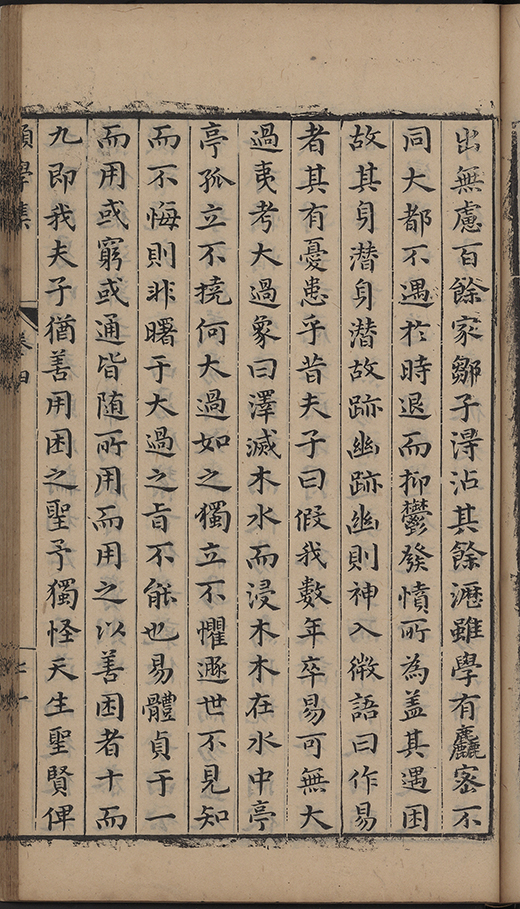 出無慮百餘家鄒子淂沾其餘瀝雖學有麤宻不
同大都不遇於時退而抑鬱發憤所為盖其遇困
故其身潜身潜故跡幽跡幽則神入微語曰作易
者其有憂患乎昔夫子曰假我數年卒易可無大
過夷考大過象曰澤滅木水而浸木木在水中亭
亭孤立不撓何大過如之獨立不懼遯世不見知
而不悔則非曙于大過之㫖不能也易體貞于一
而用或窮或通皆随所用而用之以善困者十而
九即我夫子猶善用困之聖予獨怪天生聖賢俾
學集
卷四